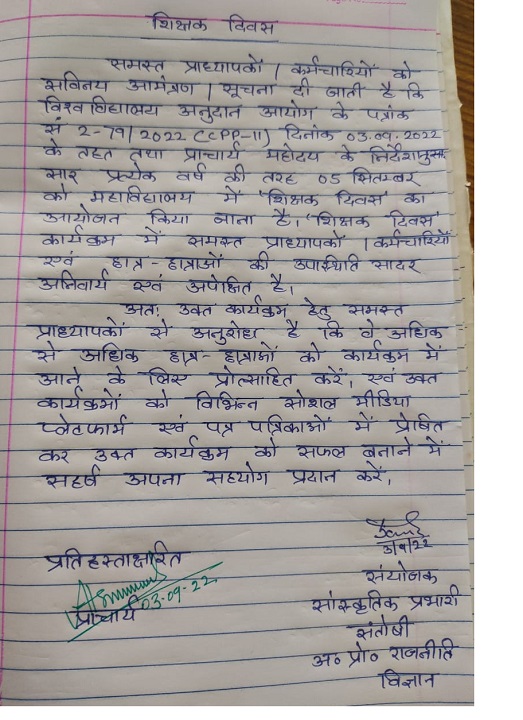 शिक्षक दिवस
समस्त प्राध्यापकों / कर्मचारियों को
सविनय आमंत्रण / सूचना दी जाती है कि
विश्वविद्यालय अनुदान आयोग के पत्रांक
सं 2-79/2022 (CPP-II) दिनांक 03.09.2022
के तहत तथा प्राचार्य महोदय के निर्देशानु
सार प्रत्येक वर्ष की तरह 05 सितम्बर
को महाविद्यालय में 'शिक्षक दिवस' का
आयोजन किया जाना है। 'शिक्षक दिवस'
कार्यक्रम में समस्त प्राध्यापकों / कर्मचारियों
एवं छात्र-छात्राओं की उपस्थिति सादर
अनिवार्य एवं अपेक्षित है।
अतः उक्त कार्यक्रम हेतु समस्त
प्राध्यापकों से अनुरोध है कि वे अधिक
से अधिक छात्र-छात्राओं को कार्यक्रम में
आने के लिए प्रोत्साहित करें, एवं उक्त
कार्यक्रमों को विभिन्न सोशल मीडिया
प्लेटफार्म एवं पत्र पत्रिकाओं में प्रेषित
कर उक्त कार्यक्रम को सफल बनाने में
सहर्ष अपना सहयोग प्रदान करें,
3/9/22
प्रतिहस्ताक्षरित
03-09-22
प्राचार्य
संयोजक
सांस्कृतिक प्रभारी
संतोषी
अ० प्रो० राजनीति
विज्ञान